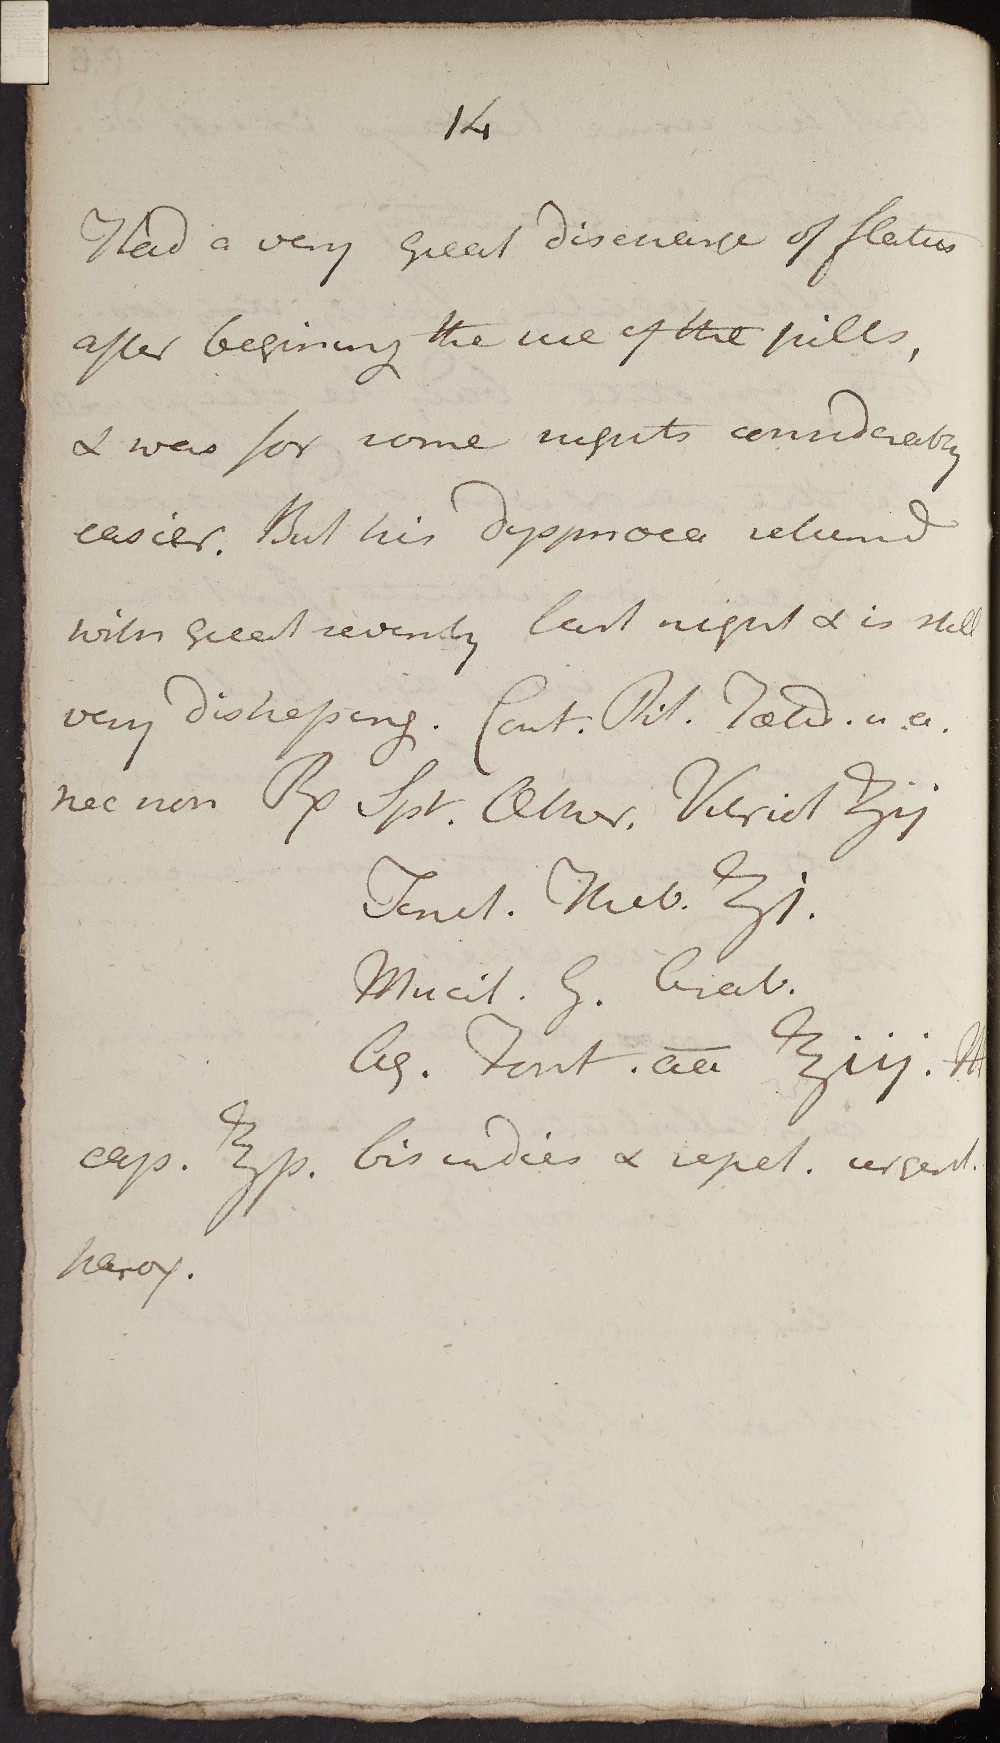 14
Had a very great discharge of flatus
after begining the use of the pills,
& was for some nights considerably
easier. But his dyspnoea returnd
with great severity last night & is still
very distressing. Cont. Pil. Fœtid. u. a.
nec non ℞ Spt. Æther. Vitriol ʒij
Tinct. Theb. ʒj.
Mucil. G. Arab.
Aq. Font. aa ℥iij. M
cap. ℥ß. bis indies & repet. urgent.
parox.